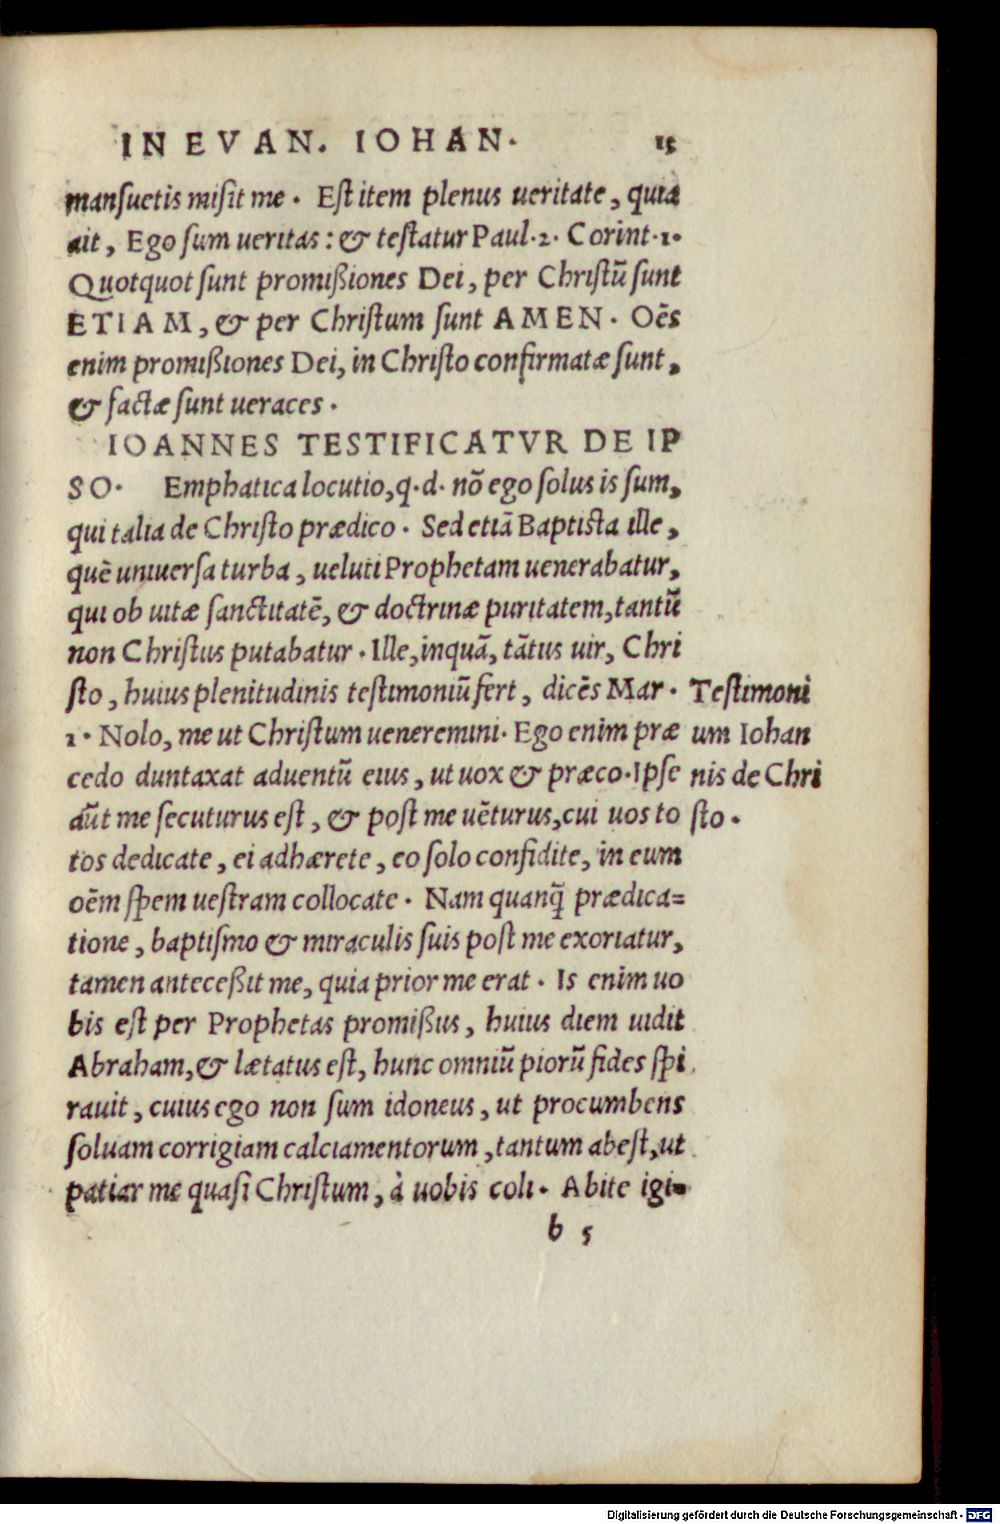 IN EVAN. IOHAN. 15
mansuetis misit me. Est item plenus ueritate, quia
ait, Ego sum ueritas: & testatur Paul. 2. Corint. 1.
Quotquot sunt promißiones Dei, per Christũ sunt
ETIAM, & per Christum sunt AMEN. Oẽs
enim promißiones Dei, in Christo confirmatæ sunt,
& factæ sunt ueraces.
IOANNES TESTIFICATVR DE IP
SO. Emphatica locutio, q. d. nõ ego solus is sum,
qui talia de Christo prædico. Sed etiã Baptista ille,
quẽ uniuersa turba, ueluti Prophetam uenerabatur,
qui ob uitæ sanctitatẽ, & doctrinæ puritatem, tantũ
non Christus putabatur. Ille, inquã, tãtus uir, Chri
sto, huius plenitudinis testimoniũ fert, dicẽs Mar.
1. Nolo, me ut Christum ueneremini. Ego enim præ
cedo duntaxat aduentũ eius, ut uox & præco. Ipse
aũt me secuturus est, & post me uẽturus, cui uos to
tos dedicate, ei adhærete, eo solo confidite, in eum
oẽm spem uestram collocate. Nam quanq̃ prædica=
tione, baptismo & miraculis suis post me exoriatur,
tamen anteceßit me, quia prior me erat. Is enim uo
bis est per Prophetas promißus, huius diem uidit
Abraham, & lætatus est, hunc omniũ piorũ fides spi
rauit, cuius ego non sum idoneus, ut procumbens
soluam corrigiam calciamentorum, tantum abest, ut
patiar me quasi Christum, à uobis coli. Abite igi=
b 5
Testimoni
um Iohan
nis de Chri
sto.
Digitalisierung gefördert durch die Deutsche Forschungsgemeinschaft - DFG